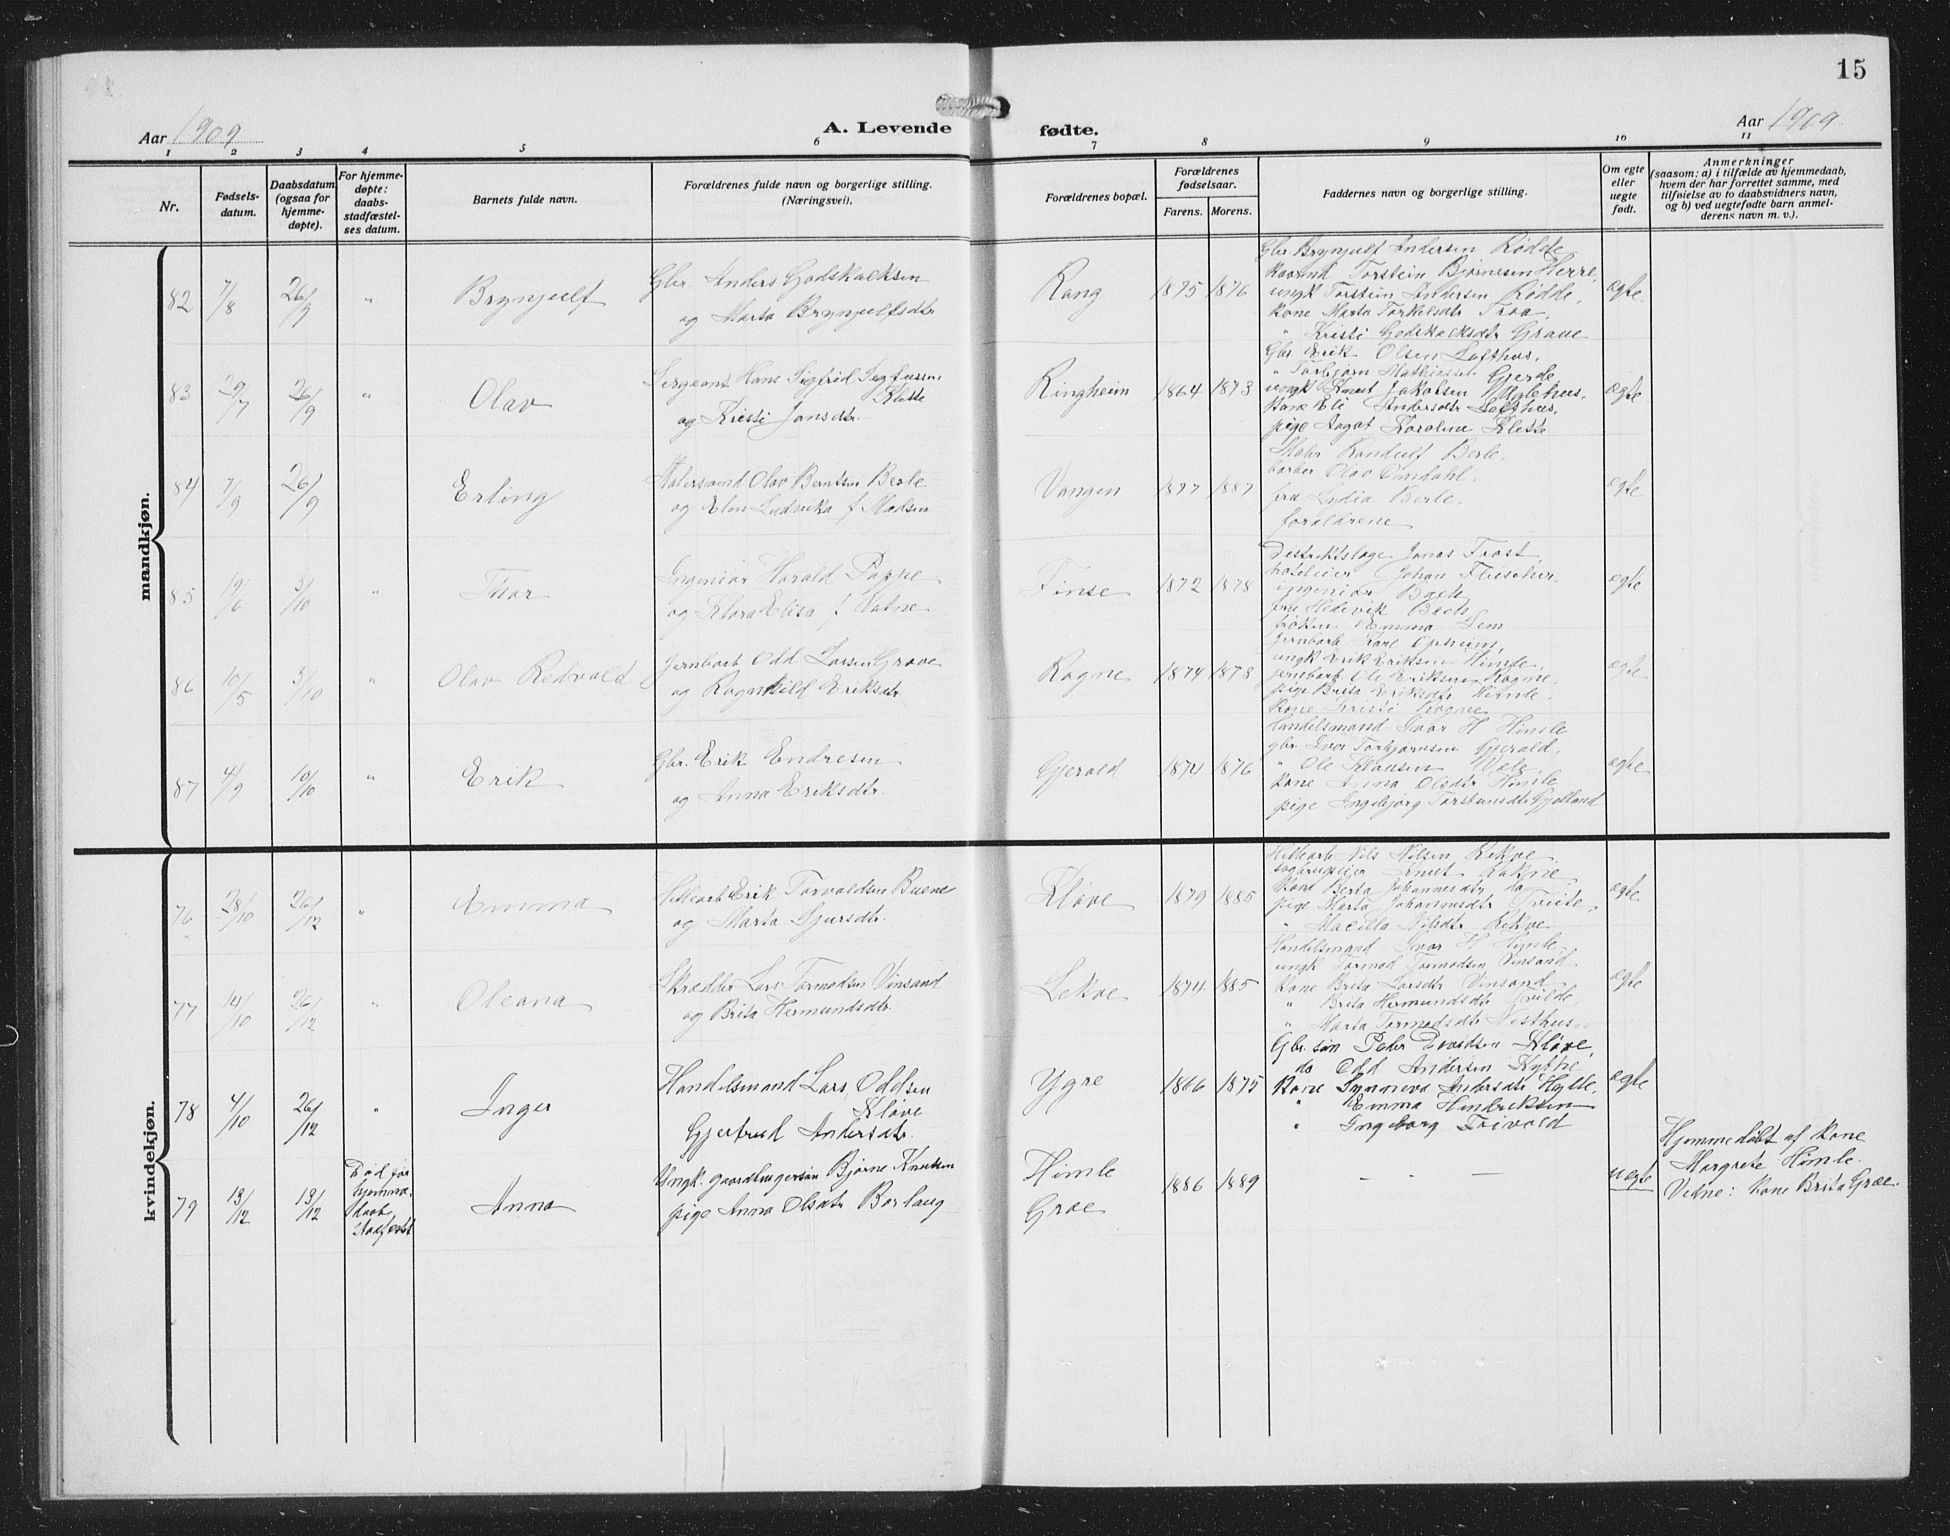 15
Aar 1909
A. Levende fødte.
Aar 1909
1 2 3 4 5 6 7 8 9 10 11
Nr.
Fødsels-
datum.
Daabsdatum
(ogsaa for
hjemme-
døpte).
For hjemme-
døpte:
daabs-
stadfæstel-
ses datum.
Barnets fulde navn.
Forældrenes fulde navn og borgerlige stilling.
(Næringsvei).
Forældrenes bopæl.
Forældrenes
fødselsaar.
Farens. Morens.
Faddernes navn og borgerlige stilling.
Om egte
eller
uegte
født.
Anmerkninger
(saasom: a) i tilfælde av hjemmedaab,
hvem der har forrettet samme, med
tilføielse av to daabsvidners navn,
og b) ved uegtefødte barn anmel-
derens navn m. v.).
mandkjøn.
82 7/8 26/9 " Brynjulf
Gbr. Anders Godskalksen
og Marta Brynjulfsdtr
Rong 1875 1876
Gbr Brynjulf Andersen Rødde
Torstein Bjørnesen Herre,
ungk Torstein Andersen Rødde,
kone Marta Torkelsdtr Troa,
" Kristi Godskalksdtr Graue
egte
83 29/7 26/9 " Olav
Sergeant Hans Sigfrid Sigfussen
Klette
og Kristi Jonsdtr.
Ringheim 1864 1873
Gbr Erik Olsen Lofthus,
" Torbjørn Mathiassen Gjerde
ungk Knut Jakobsen Mølehus,
kone Eli Andersdtr Lofthus,
pige Aagot Karoline Klette
egte
84 7/9 26/9 Erling
Malersvend Olav Berntsen Berle
og Elen Ludvika f Madsen
Vangen 1877 1887
Maler Randulf Berle,
barber Olav Omdahl,
fru Lydia Berle,
forældrene
egte
85 19/6 3/10 " Thor
Ingeniør Harald Pappe
og Klara Elisa f Vatne
Finse 1872 1878
Distriktslæge Jonas Frost
hoteleier Johan Fleischer,
ingeniør Bach
fru Hedevik Bach
frøken Emma Lem
egte
86 10/5 3/10 " Olav Redvald
Jernbarb Odd Larsen Grove
og Ragnhild Eriksdtr.
Rogne 1874 1878
Jernbarb Karl Opheim,
ungk Erik Eriksen Himle,
jernbarb Ole Eriksen Rogne,
pige Brita Eriksdtr Himle,
kone Kristi Rogne
egte
87 4/9 10/10 " Erik
Gbr. Erik Endresen
og Anna Eriksdtr.
Gjerald 1874 1876
Handelsmand Ivar H Himle
gbr. Iver Torbjørnsen Gjerald,
" Ole Klausen Møle,
kone Anna Olsdtr Himle
pige Ingebjørg Torsteinsdtr Gjelland
egte
kvindekjøn.
76 28/10 26/12 " Emma
Erik Torvaldsen Buene
og Marta Sjursdtr.
Kløve 1879 1885
Nils Nilsen Rekve,
sagbrugseier Knut Rokne
kone Berta Johannesdtr do
pige Marta Johannesdtr Tveite,
" Nilsdtr Rekve
egte
77 14/10 26/12 " Oleana
Skrædder Lars Tormodsen Vinsand
og Brita Hermundsdtr.
Lekve 1874 1885
Handelsmand Ivar H Himle,
ungk Tormod Tormodsen Vinsand
kone Brita Larsdtr Vinsand
" Brita Hermundsdtr
" Marta Tormodsdtr Nesthus
egte
78 4/10 26/12 " Inger
Handelsmand Lars Oddsen
Kløve
Gjertrud Andersdtr.
Ygre 1866 1875
Gbr. søn Peder Davidsen Kløve,
do Odd Andersen Kythe
kone Synneva Andersdtr Hylle
" Emma Hendriksen
" Ingeborg Trivold
egte
79 13/12 13/12
Død før
hjemme-
daab
stadfæst
Anna
Ungk. gaardbrugersøn Bjørne Knutsen
pige Anna Olsdtr Borlaug
Himle
Groe
1886 1889
- -
uegte
Hjemmedøbt af kone
Margrete Himle.
Vidne: kone Brita Groe.